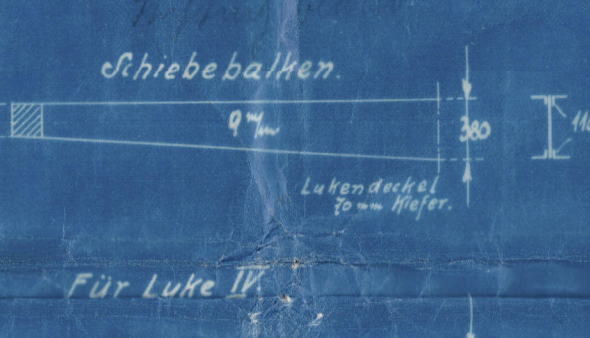 Schiebebalken.
9 m/m
380
Lukendeckel
70 mm Kiefer.
Für Luke IV.